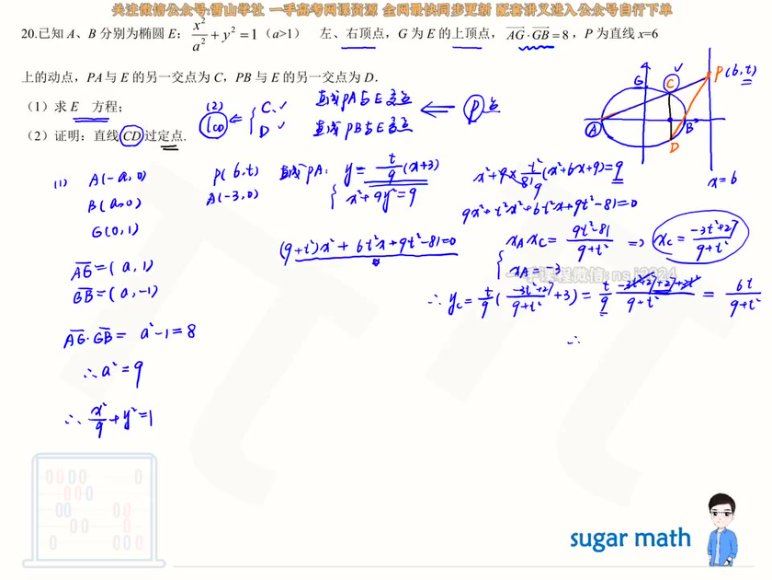 关注微信公众号:雷山学社 一手高考网课资源 全网最快同步更新 配套讲义进入公众号自行下单
20.已知 A、B 分别为椭圆 E: x²/a² + y² = 1 (a>1) 左、右顶点, G 为 E 的上顶点, AG·GB = 8, P 为直线 x=6
上的动点, PA 与 E 的另一交点为 C, PB 与 E 的另一交点为 D.
(1) 求 E 方程;
(2) 证明: 直线 CD 过定点.
(2)
l_CD ⇐ { C. ✓ 直线PA与E交点
D ✓ 直线PB与E交点
⇐ P 点
G C P(6,t)
A B
D
x=6
(1) A(-a,0)
B(a,0)
G(0,1)
AG=(a,1)
GB=(a,-1)
AG·GB= a²-1=8
∴ a²=9
∴ x²/9+y²=1
P(6,t)
A(-3,0)
直线PA: { y= t/9 (x+3)
x²+9y²=9
(9+t²)x²+6t²x+9t²-81=0
x²+9× t²/81 (x²+6x+9)=9
9
9x²+t²x²+6t²x+9t²-81=0
{ x_A x_C= (9t²-81)/(9+t²) ⇒ x_C= (-3t²+27)/(9+t²)
x_A=-3
∴ y_C= t/9 ( (-3t²+27)/(9+t²) +3)= t/9 (-3t²+27+27+3t²)/(9+t²) = 6t/(9+t²)
∴
sugar math